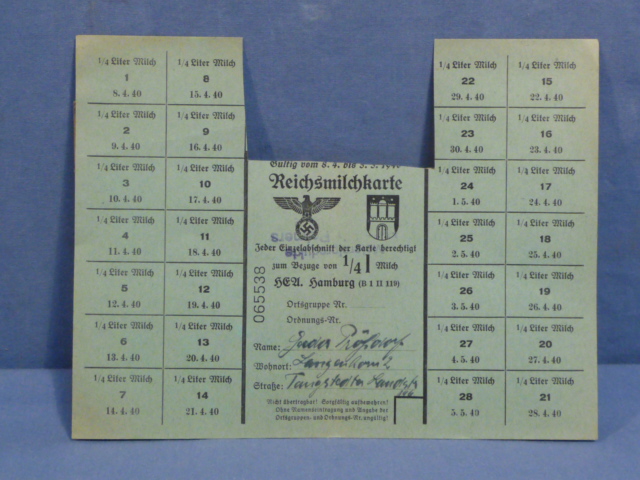 1/4 Liter Milch
1
8. 4. 40
1/4 Liter Milch
8
15. 4. 40
1/4 Liter Milch
2
9. 4. 40
1/4 Liter Milch
9
16. 4. 40
1/4 Liter Milch
3
10. 4. 40
1/4 Liter Milch
10
17. 4. 40
1/4 Liter Milch
4
11. 4. 40
1/4 Liter Milch
11
18. 4. 40
1/4 Liter Milch
5
12. 4. 40
1/4 Liter Milch
12
19. 4. 40
1/4 Liter Milch
6
13. 4. 40
1/4 Liter Milch
13
20. 4. 40
1/4 Liter Milch
7
14. 4. 40
1/4 Liter Milch
14
21. 4. 40
Gültig vom 8. 4. bis 5. 5.
Reichsmilchkarte
Jeder Einzelabschnitt der Karte berechtigt
zum Bezuge von 1/4 l Milch
HEA. Hamburg (B 1 II 119)
065538
Ortsgruppe Nr.
Ordnungs-Nr.
Name:
Wohnort:
Straße:
Nicht übertragbar! Sorgfältig aufbewahren!
Ohne Namenseintragung und Angabe der
Ortsgruppen- und Ordnungs-Nr. ungültig!
1/4 Liter Milch
22
29. 4. 40
1/4 Liter Milch
15
22. 4. 40
1/4 Liter Milch
23
30. 4. 40
1/4 Liter Milch
16
23. 4. 40
1/4 Liter Milch
24
1. 5. 40
1/4 Liter Milch
17
24. 4. 40
1/4 Liter Milch
25
2. 5. 40
1/4 Liter Milch
18
25. 4. 40
1/4 Liter Milch
26
3. 5. 40
1/4 Liter Milch
19
26. 4. 40
1/4 Liter Milch
27
4. 5. 40
1/4 Liter Milch
20
27. 4. 40
1/4 Liter Milch
28
5. 5. 40
1/4 Liter Milch
21
28. 4. 40